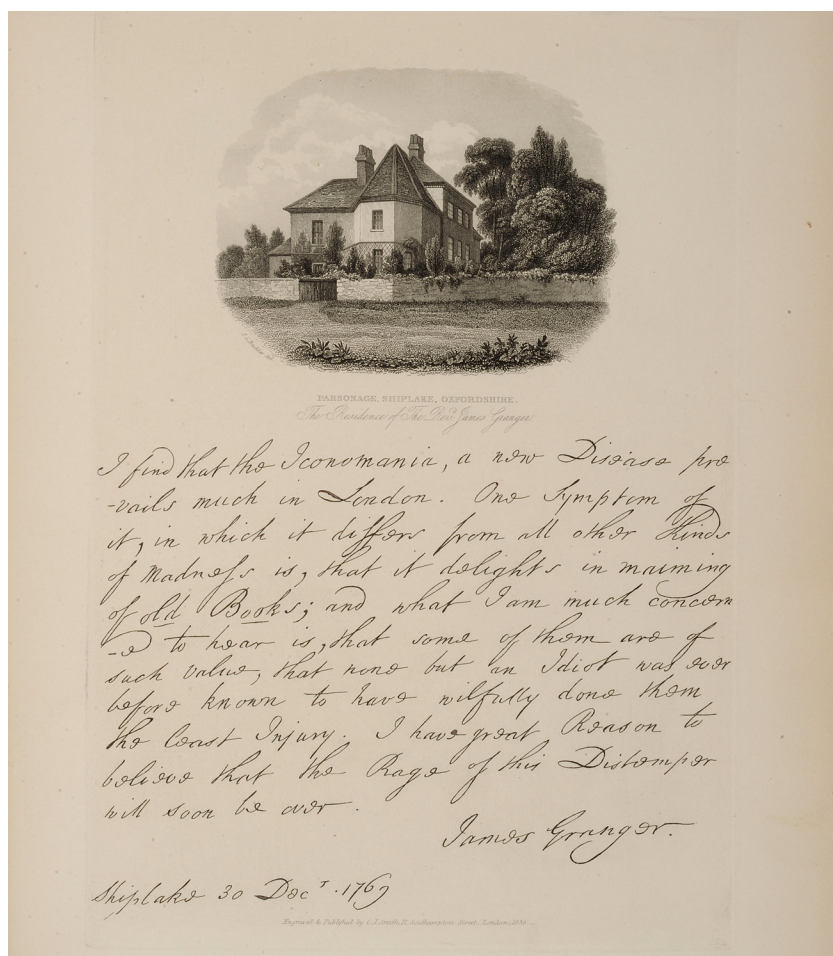 PARSONAGE, SHIPLAKE, OXFORDSHIRE.
The Residence of The Revd. James Granger
I find that the Iconomania, a new Disease pre
-vails much in London. One Symptom of
it, in which it differs from all other Kinds
of Madness is, that it delights in maiming
of old Books; and what I am much concern
-ed to hear is, that some of them are of
such value, that none but an Idiot was ever
before known to have wilfully done them
the least Injury. I have great Reason to
believe that the Rage of this Distemper
will soon be over.
James Granger.
Shiplake 30 Decr. 1769
Engraved & Published by C.J. Smith, Southampton Street, London,